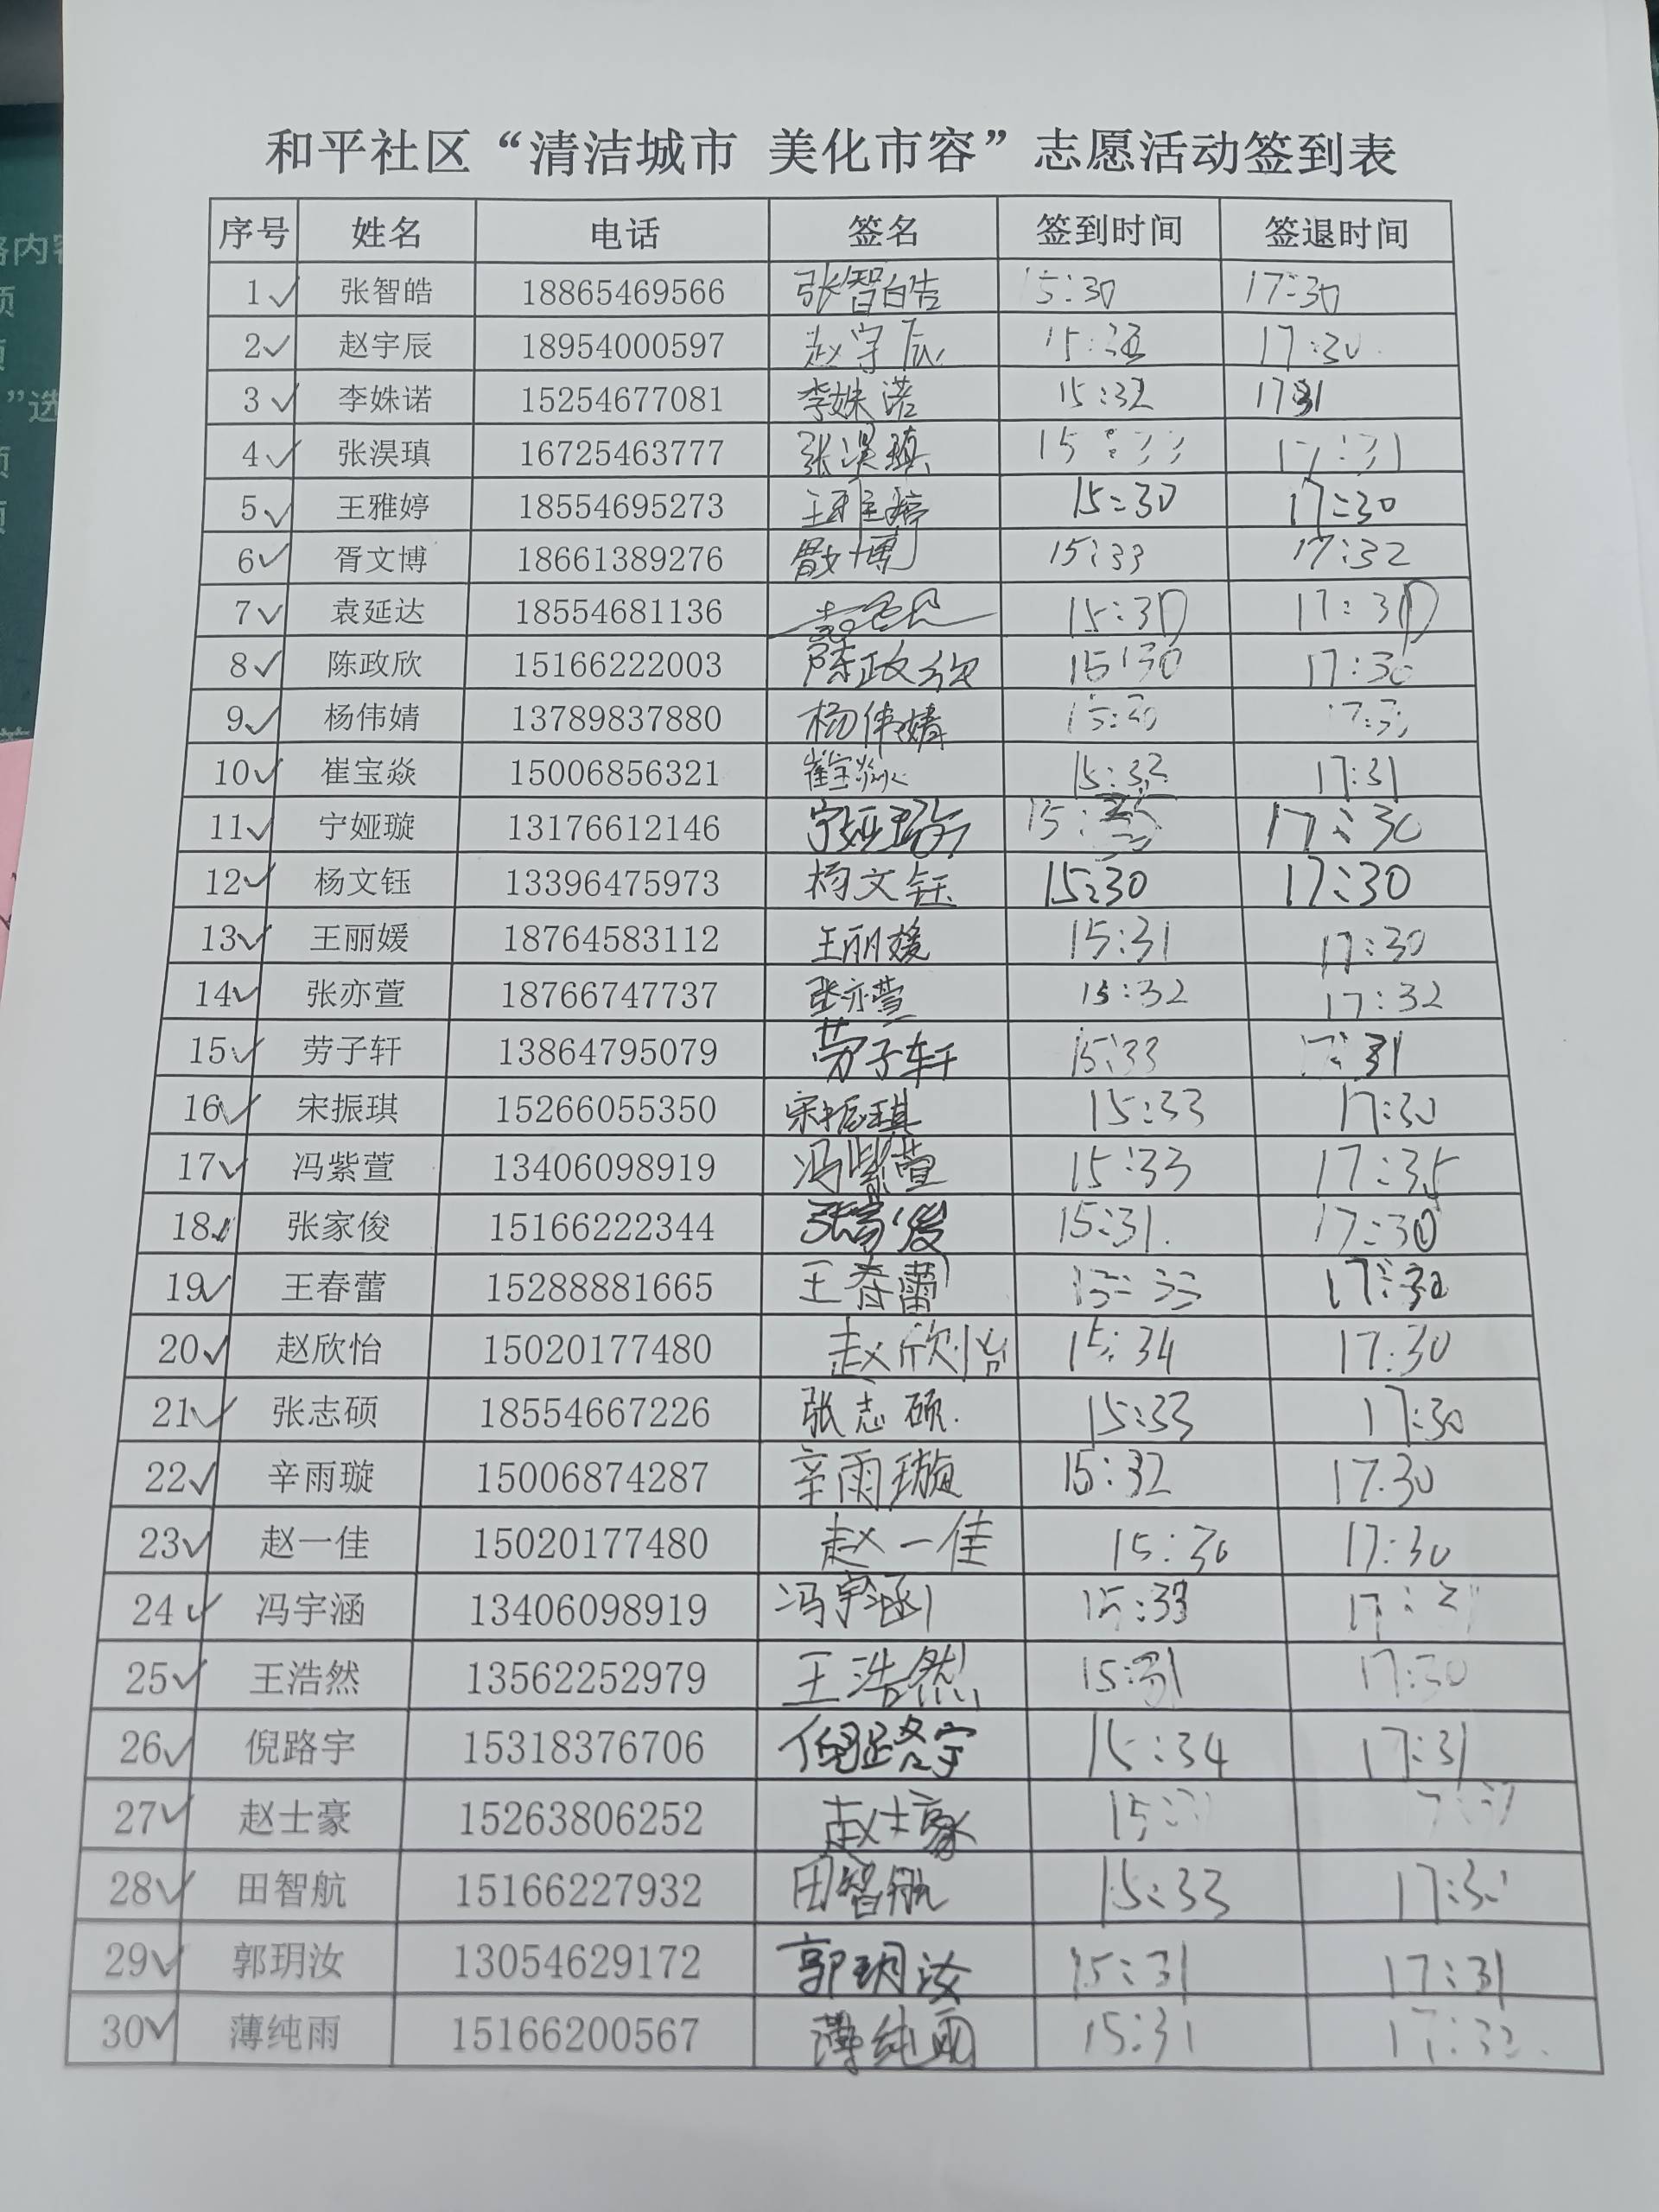 和平社区“清洁城市 美化市容”志愿活动签到表
序号 姓名 电话 签名 签到时间 签退时间
1 张智皓 18865469566 张智皓 15:30 17:30
2 赵宇辰 18954000597 赵宇辰 15:33 17:30
3 李姝诺 15254677081 李姝诺 15:32 17:31
4 张淏瑱 16725463777 张淏瑱 15:33 17:31
5 王雅婷 18554695273 王雅婷 15:30 17:30
6 胥文博 18661389276 胥文博 15:33 17:32
7 袁延达 18554681136 15:30 17:30
8 陈政欣 15166222003 陈政欣 15:30 17:30
9 杨伟婧 13789837880 杨伟婧 15:30
10 崔宝焱 15006856321 崔宝焱 15:32 17:31
11 宁娅璇 13176612146 宁娅璇 17:30
12 杨文钰 13396475973 杨文钰 15:30 17:30
13 王丽媛 18764583112 王丽媛 15:31 17:30
14 张亦萱 18766747737 张亦萱 15:32 17:32
15 劳子轩 13864795079 劳子轩 15:33 17:31
16 宋振琪 15266055350 宋振琪 15:33 17:30
17 冯紫萱 13406098919 冯紫萱 15:33 17:35
18 张家俊 15166222344 张家俊 15:31 17:30
19 王春蕾 15288881665 王春蕾 15:33 17:30
20 赵欣怡 15020177480 赵欣怡 15:34 17:30
21 张志硕 18554667226 张志硕 15:33 17:30
22 辛雨璇 15006874287 辛雨璇 15:32 17:30
23 赵一佳 15020177480 赵一佳 15:30 17:30
24 冯宇涵 13406098919 冯宇涵 15:33
25 王浩然 13562252979 王浩然 15:31 17:30
26 倪路宇 15318376706 倪路宇 15:34 17:31
27 赵士豪 15263806252 赵士豪
28 田智航 15166227932 田智航 15:33 17:30
29 郭玥汝 13054629172 郭玥汝 15:31 17:31
30 薄纯雨 15166200567 薄纯雨 15:31 17:32